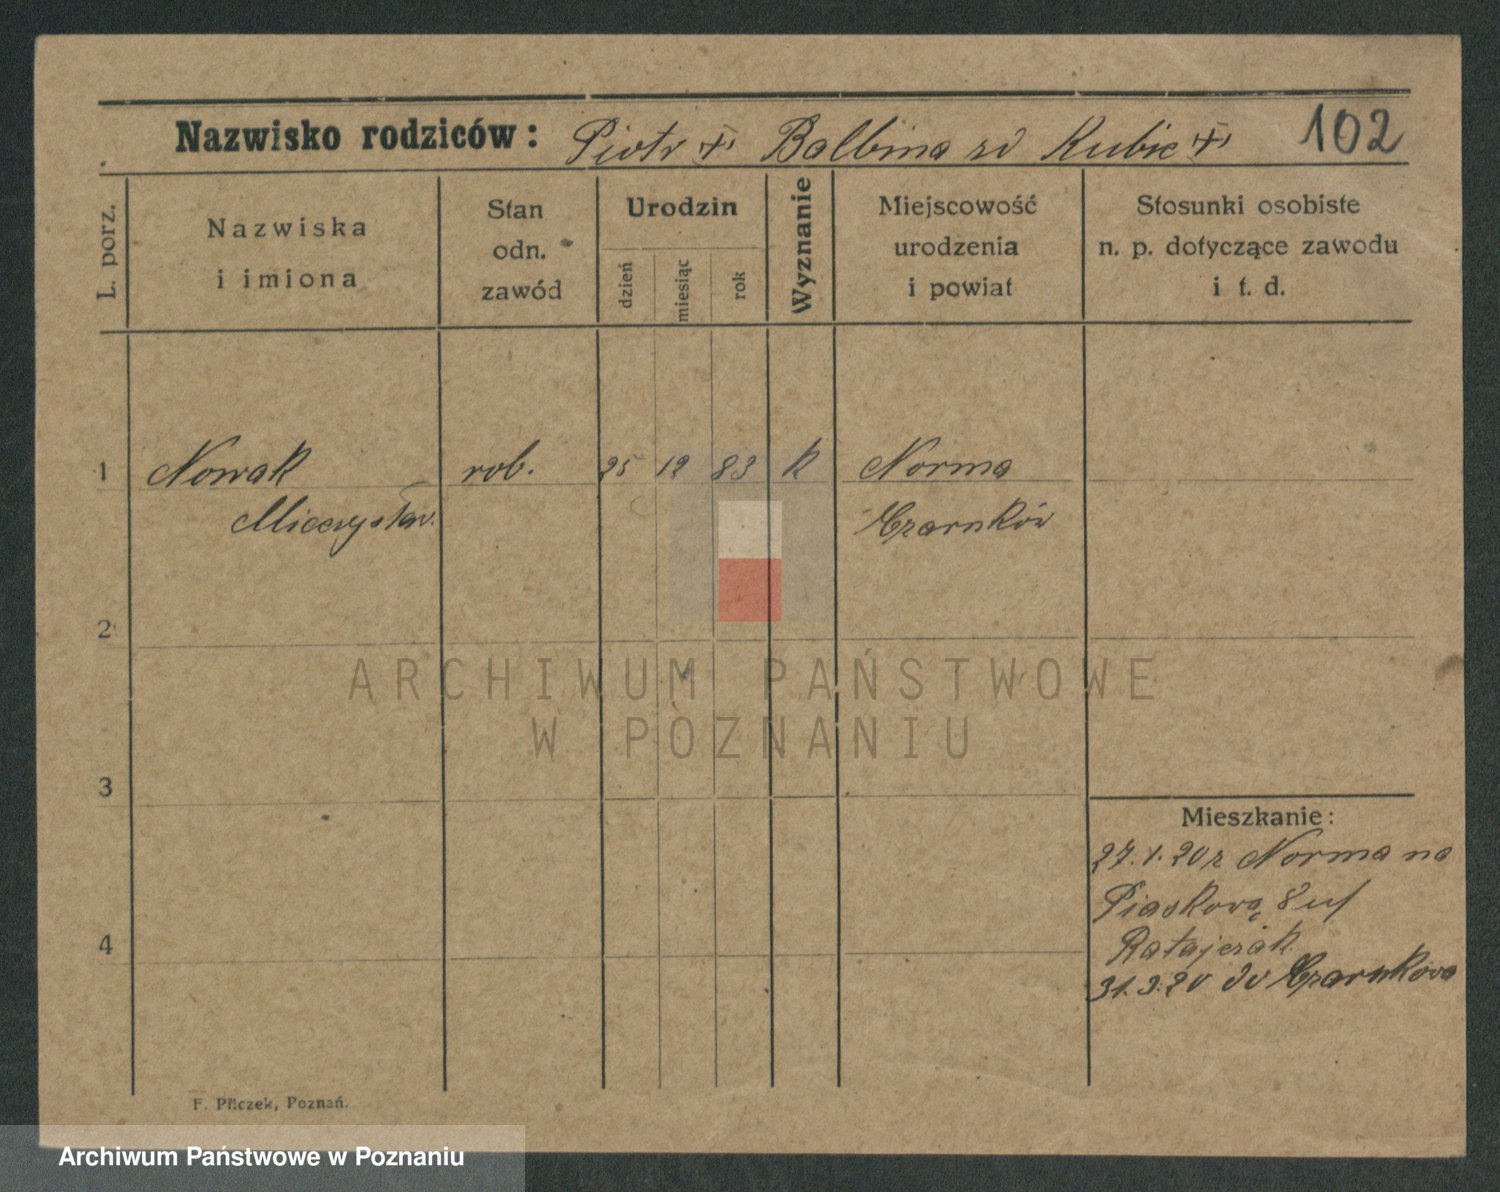 Nazwisko rodziców: Piotr + Balbina zd Kubic + 102
L. porz.
Nazwiska
i imiona
Stan
odn.
zawód
Urodzin
dzień
miesiąc
rok
Wyznanie
Miejscowość
urodzenia
i powiat
Stosunki osobiste
n. p. dotyczące zawodu
i t. d.
1 Nowak rob. 25 12 83 k Norma
Mieczysław. Czarnków
2
ARCHIWUM PAŃSTWOWE
W POZNANIU
3
Mieszkanie:
27.1.20 z Norma na
Piaskową 8
4 Ratajczak
31.3.20 do Czarnkowa
F. Pilczek, Poznań.
Archiwum Państwowe w Poznaniu